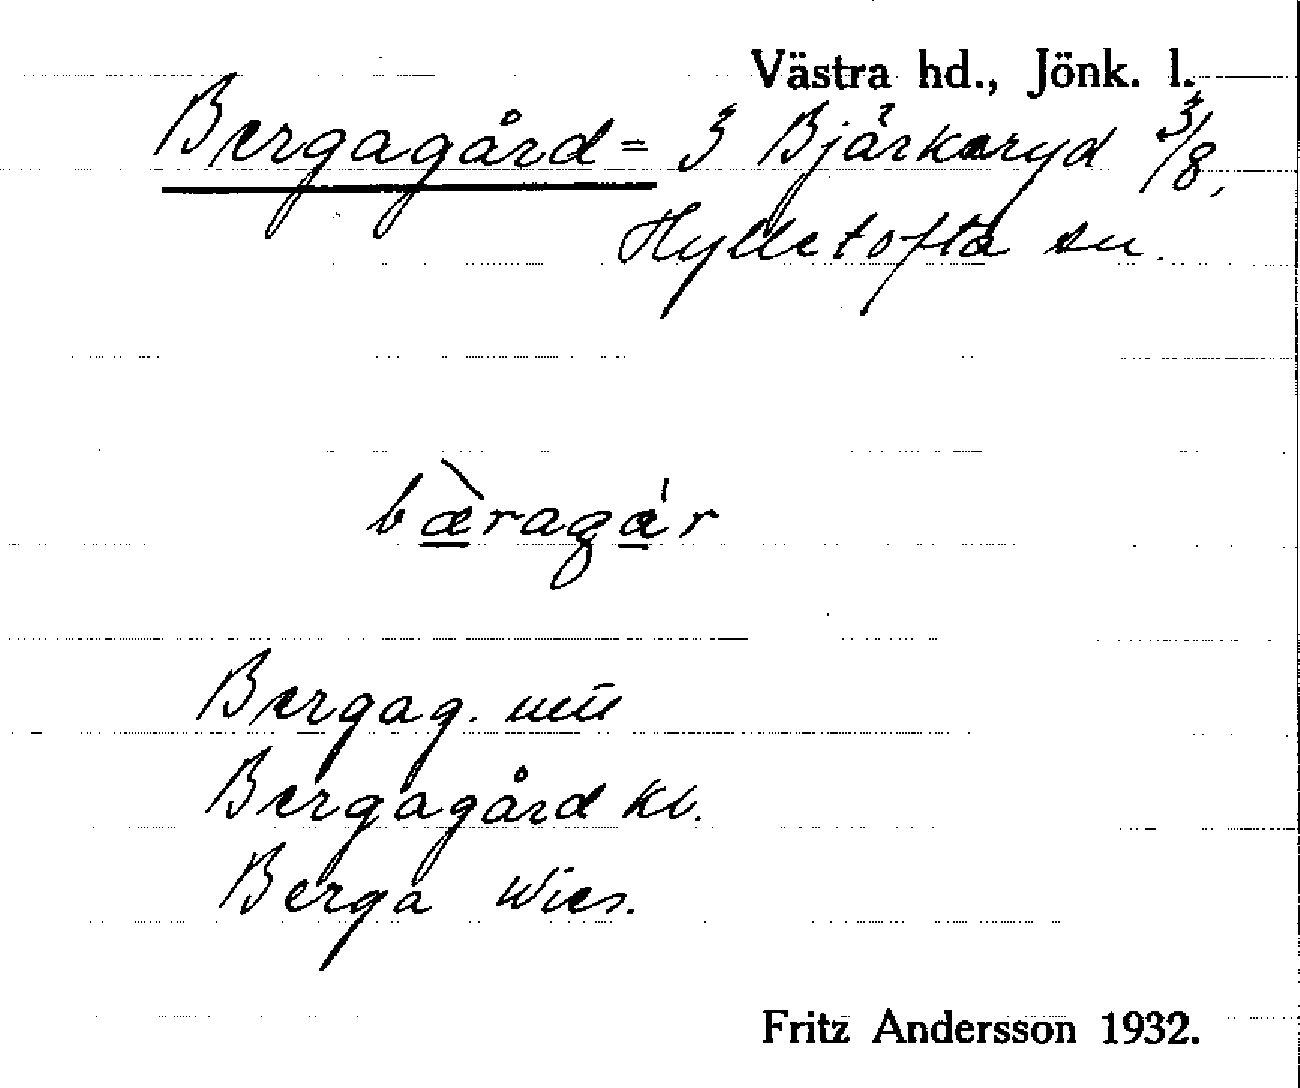 Västra hd., Jönk. l.
Bergagård = 3 Bjärkaryd 3/8,
Hylletofta sn.
bæ̀ragár
Bergag.
Bergagård kb.
Berga Wies.
Fritz Andersson 1932.